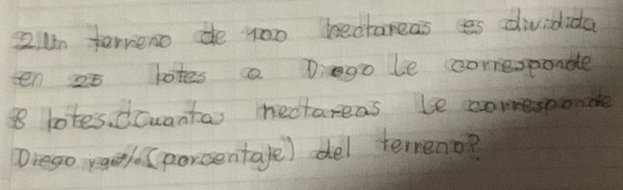 2. Un terreno de 100 hectareas es dividida
en 25 lotes a Diego le corresponde
8 lotes. ¿Cuanta hectareas le corresponde
Diego y qué % (porcentaje) del terreno?